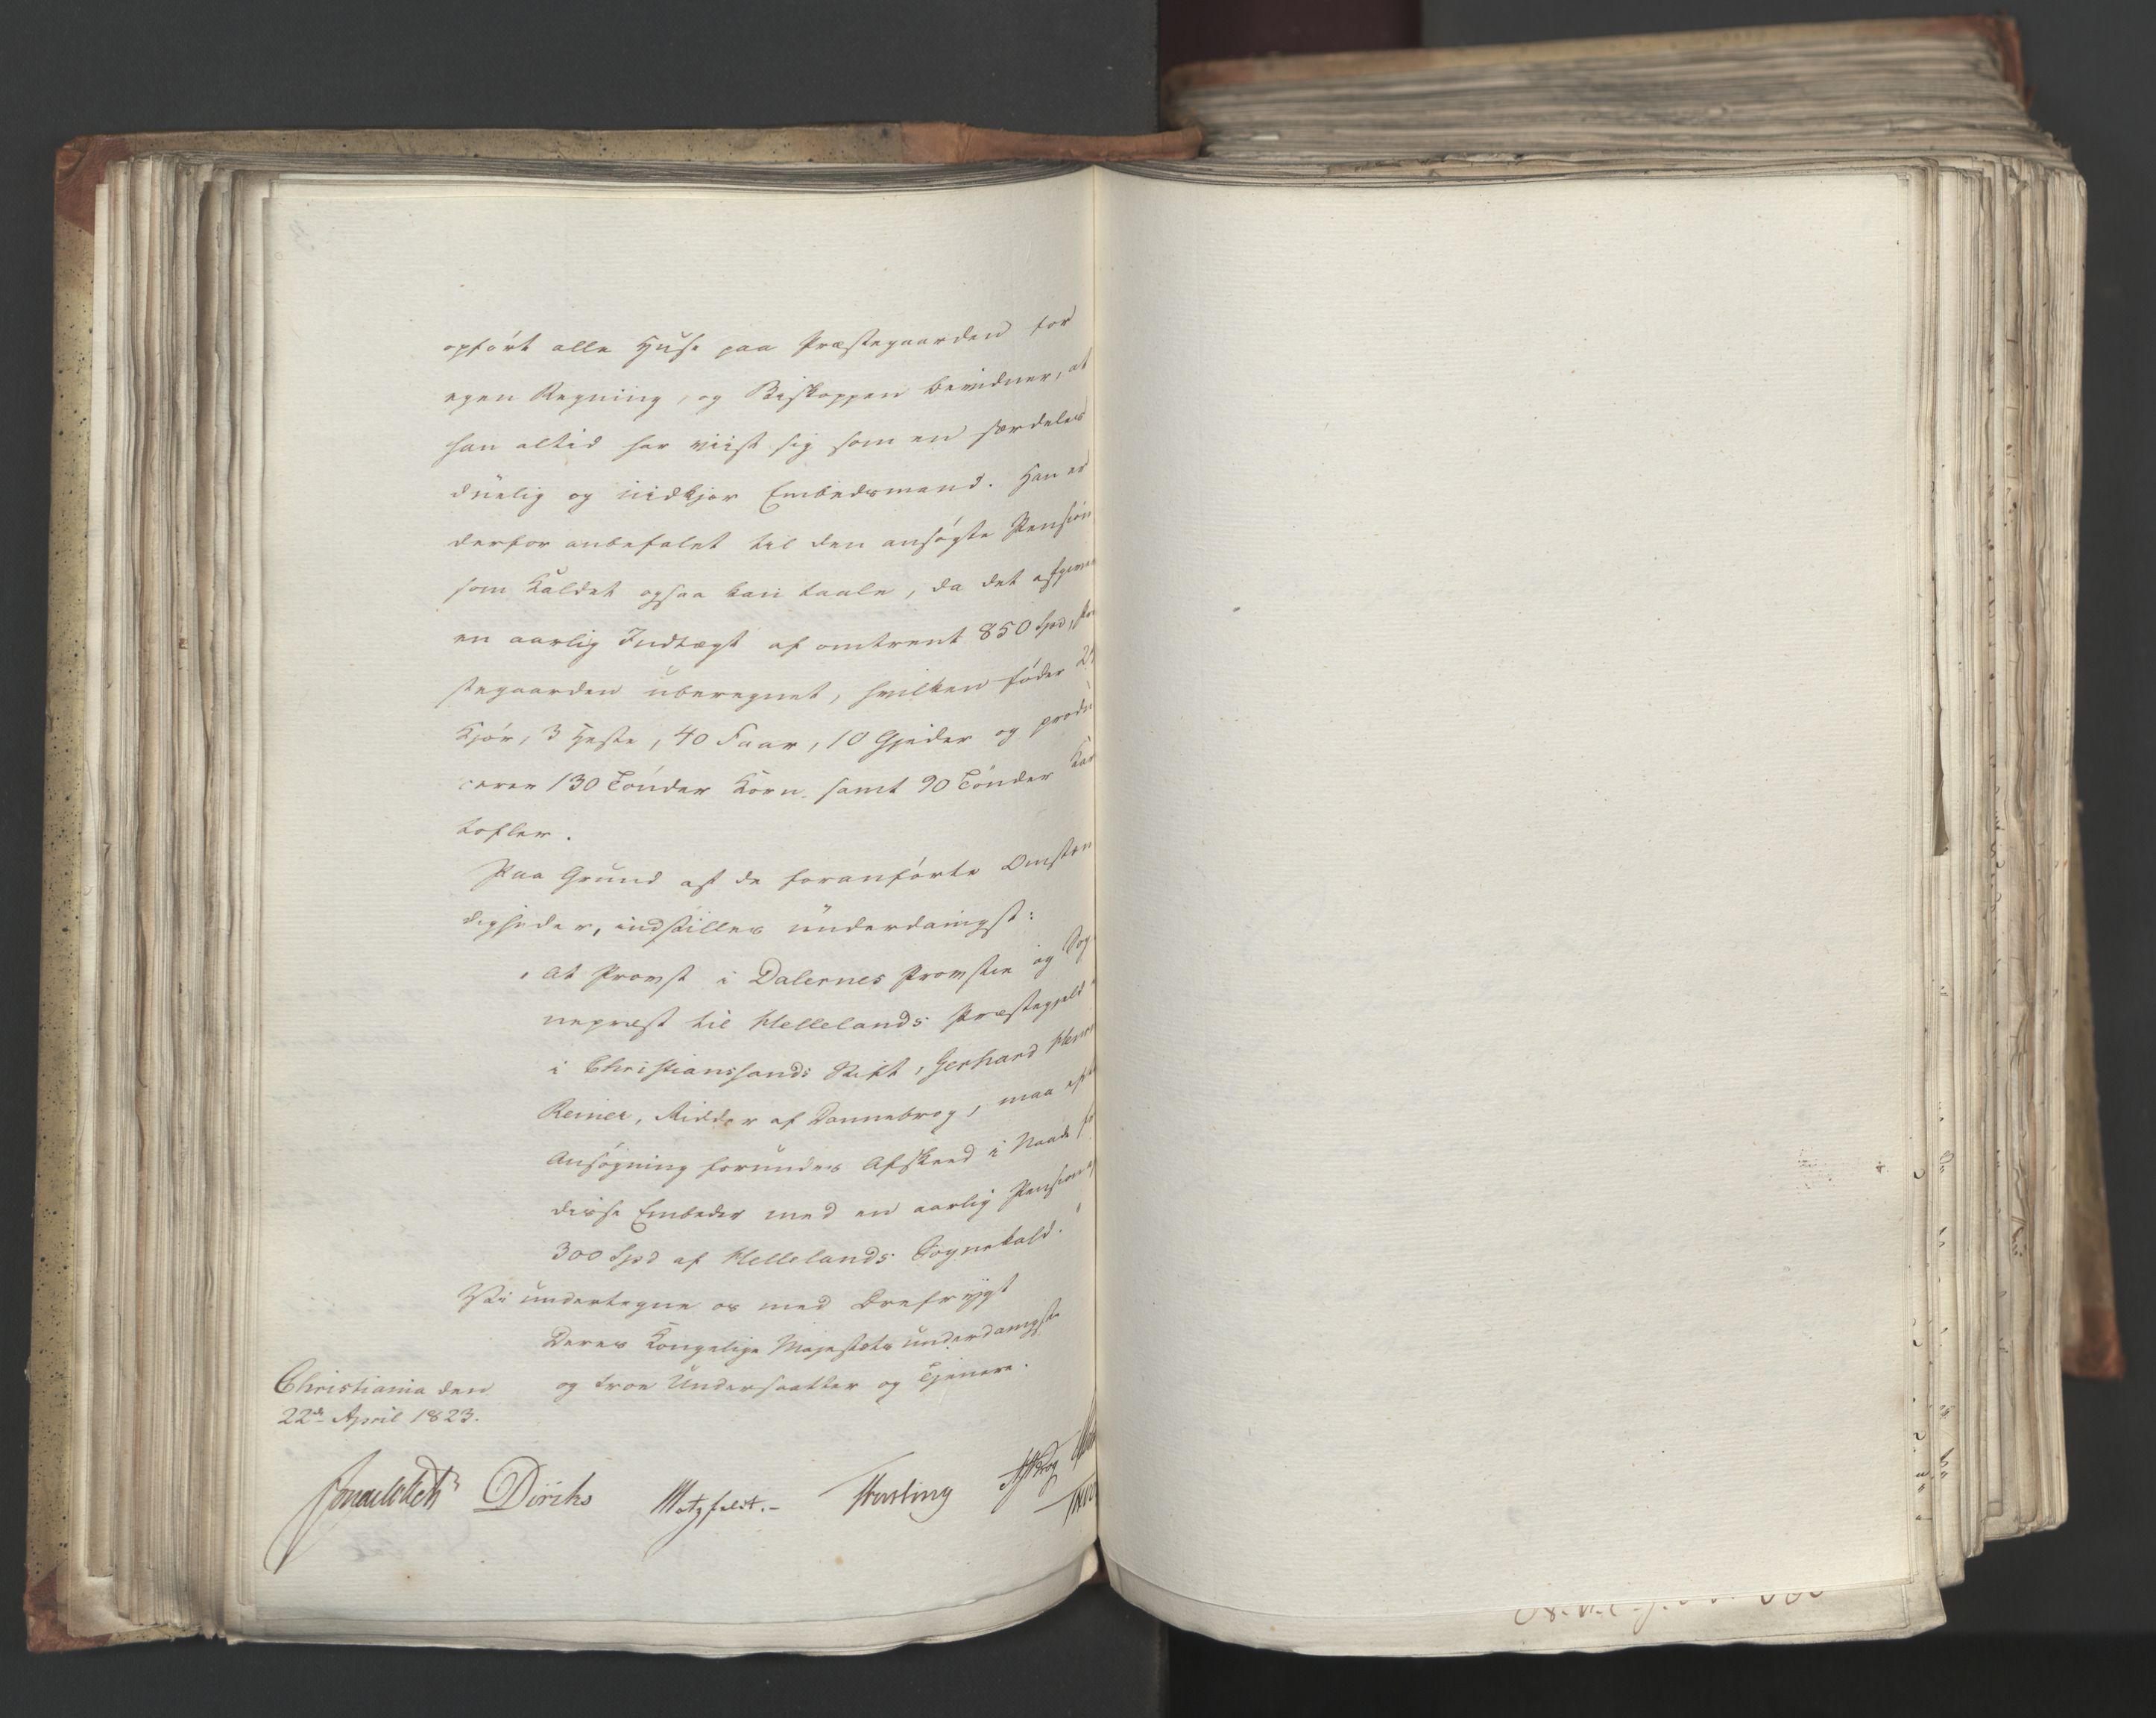 opført alle Huse paa Præstegaarden for
egen Regning, og Biskoppen bevidner, at
han altid har viist sig som en særdeles
duelig og nidkjær Embedsmand. Han er
derfor anbefalet til den ansøgte Pension
som Kaldet ogsaa kan taale, da det afgiver
en aarlig Indtægt af omtrent 850 Spd, Præ
stegaarden uberegnet, hvilken føder
Kjør, 3 Heste, 40 Faar, 10 Gjeder og produ
cerer 130 Tønder Korn samt 90 Tønder Kar
tofler.
Paa Grund af de foranførte Omstæn
digheder, indstilles underdanigst:
at Provst i Dalernes Provstie og Sog
nepræst til Hellelands Præstegjeld
i Christianssands Stift, Gerhard
Reiner, Ridder af Dannebrog, maa efter
Ansøgning forundes Afskeed i Naade fra
disse Embeder med en aarlig Pension af
300 Spd af Hellelands Sognekald.
Vi undertegne os med Ærefrygt
Deres Kongelige Majestæts underdanigste
og troe Undersaatter og Tjenere.
Christiania den
22de April 1823.
Sommerhielm Diriks Motzfeldt. Fasting